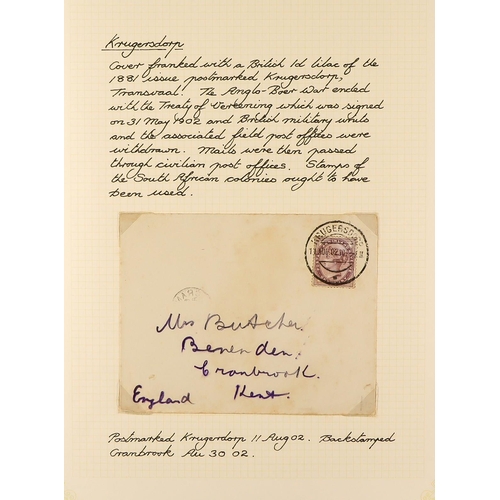 Krugersdorp
Cover franked with a British 1d lilac of the
1881 issue postmarked Krugersdorp,
Transvaal. The Anglo-Boer War ended
with the Treaty of Verkening which was signed
on 31 May 1902 and British military units
and the associated field post offices were
withdrawn. Mails were then passed
through civilian post offices. Stamps of
the South African colonies ought to have
been used.
KRUGERSDORP
Mrs Butcher
Benenden.
Cranbrook.
England Kent.
Postmarked Krugerdorp 11 Aug 02. Backstamped
Cranbrook Au 30 02.